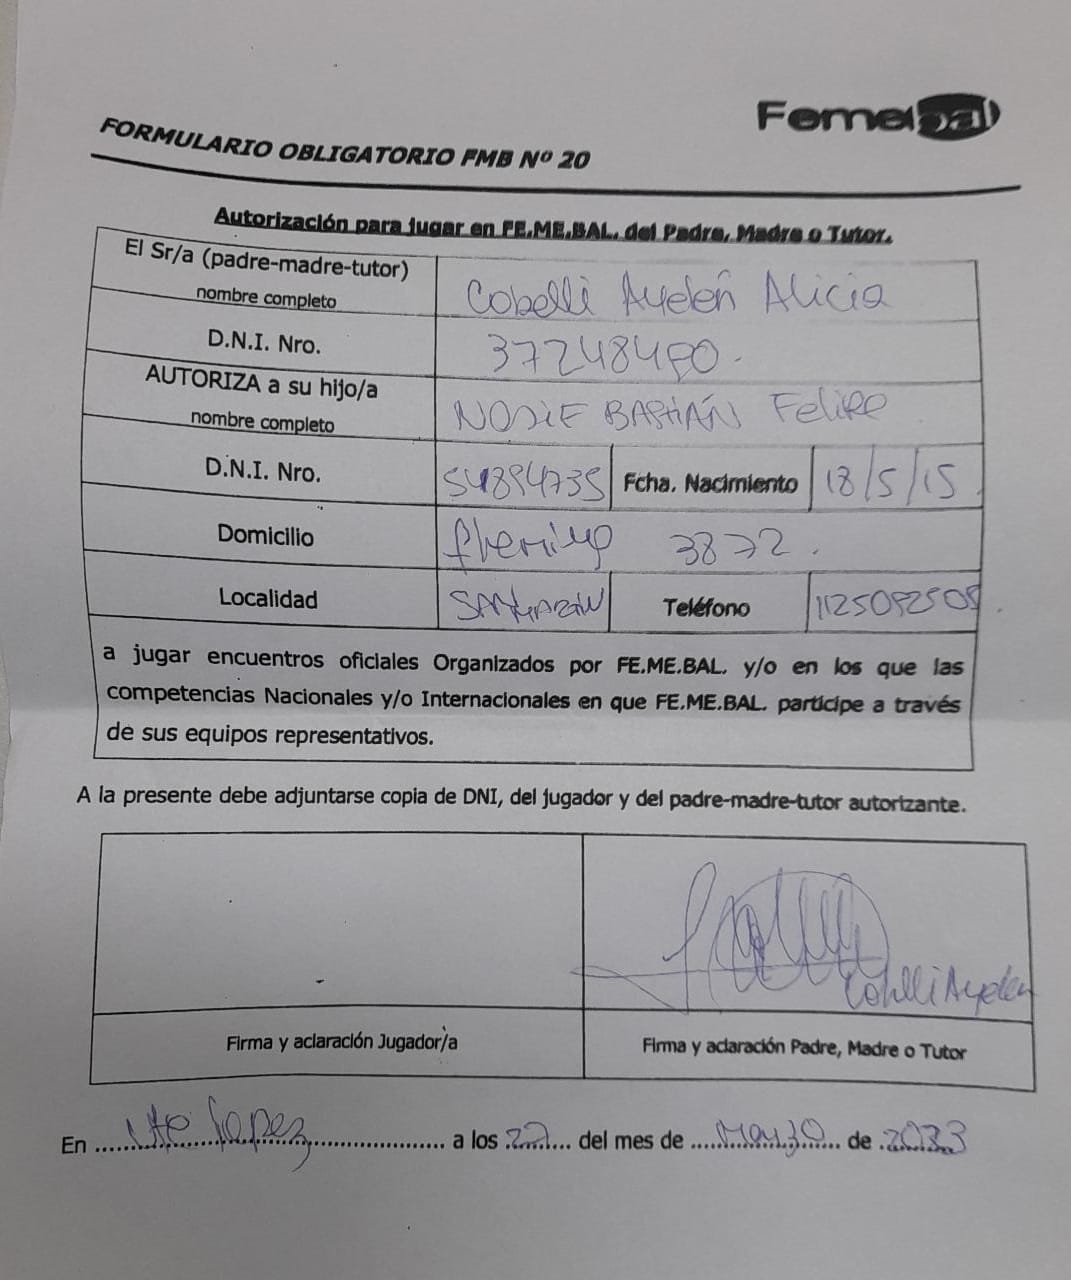 Femebal
FORMULARIO OBLIGATORIO FMB Nº 20
Autorización para jugar en FE.ME.BAL. del Padre, Madre o Tutor.
El Sr/a (padre-madre-tutor)
nombre completo
Cobelli Ayelén Alicia
D.N.I. Nro.
AUTORIZA a su hijo/a
nombre completo
BASTIÁN Felipe
D.N.I. Nro.
Fcha. Nacimiento 18/5/15
Domicilio
3872.
Localidad
Teléfono
a jugar encuentros oficiales Organizados por FE.ME.BAL. y/o en los que las
competencias Nacionales y/o Internacionales en que FE.ME.BAL. participe a través
de sus equipos representativos.
A la presente debe adjuntarse copia de DNI, del jugador y del padre-madre-tutor autorizante.
Cobelli Ayelen
Firma y aclaración Jugador/a
Firma y aclaración Padre, Madre o Tutor
En Vte Lopez a los 22 del mes de Marzo de 2023